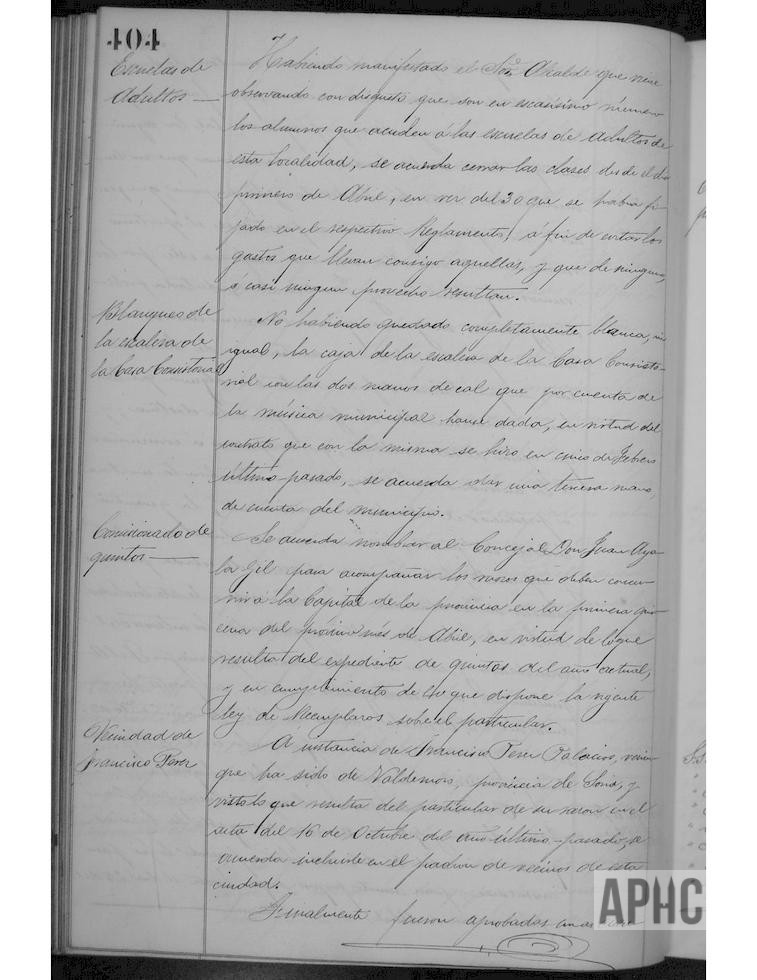 404
Escuelas de
Adultos —
Habiendo manifestado el Sor Alcalde que viene
observando con disgusto que son en escasísimo número
los alumnos que acuden á las escuelas de adultos de
esta localidad, se acuerda cerrar las clases desde el dia
primero de Abril, en vez del 30 que se habia fi-
jado en el respectivo Reglamento, á fin de evitar los
gastos que llevan consigo aquellas, y que de ningun,
ó casi ningun provecho resultan.
Blanqueo de
la escalera de
la Casa Consistorial
No habiendo quedado completamente blanca, ni
igual, la caja de la escalera de la Casa Consisto-
rial con las dos manos de cal que por cuenta de
la música municipal hanse dado, en virtud del
contrato que con la misma se hizo en cinco de Febrero
último pasado, se acuerda dar una tercera mano,
de cuenta del municipio.
Comisionado de
quintos —
Se acuerda nombrar al Concejal Don Juan Aya-
la Gil para acompañar los mozos que deben concu-
rrir á la Capital de la provincia en la primera quin-
cena del próximo més de Abril, en virtud de lo que
resulta del expediente de quintas del año actual,
y en cumplimiento de lo que dispone la vigente
ley de Reemplazos sobre el particular.
Vecindad de
Francisco Perez
A instancia de Francisco Perez Palacios, vecino
que ha sido de Valdemoro, provincia de Soria, y
visto lo que resulta del particular de su razon en el
acta del 16 de Octubre del año último pasado, se
acuerda incluirle en el padron de vecinos de esta
ciudad.
Finalmente fueron aprobadas
APHC